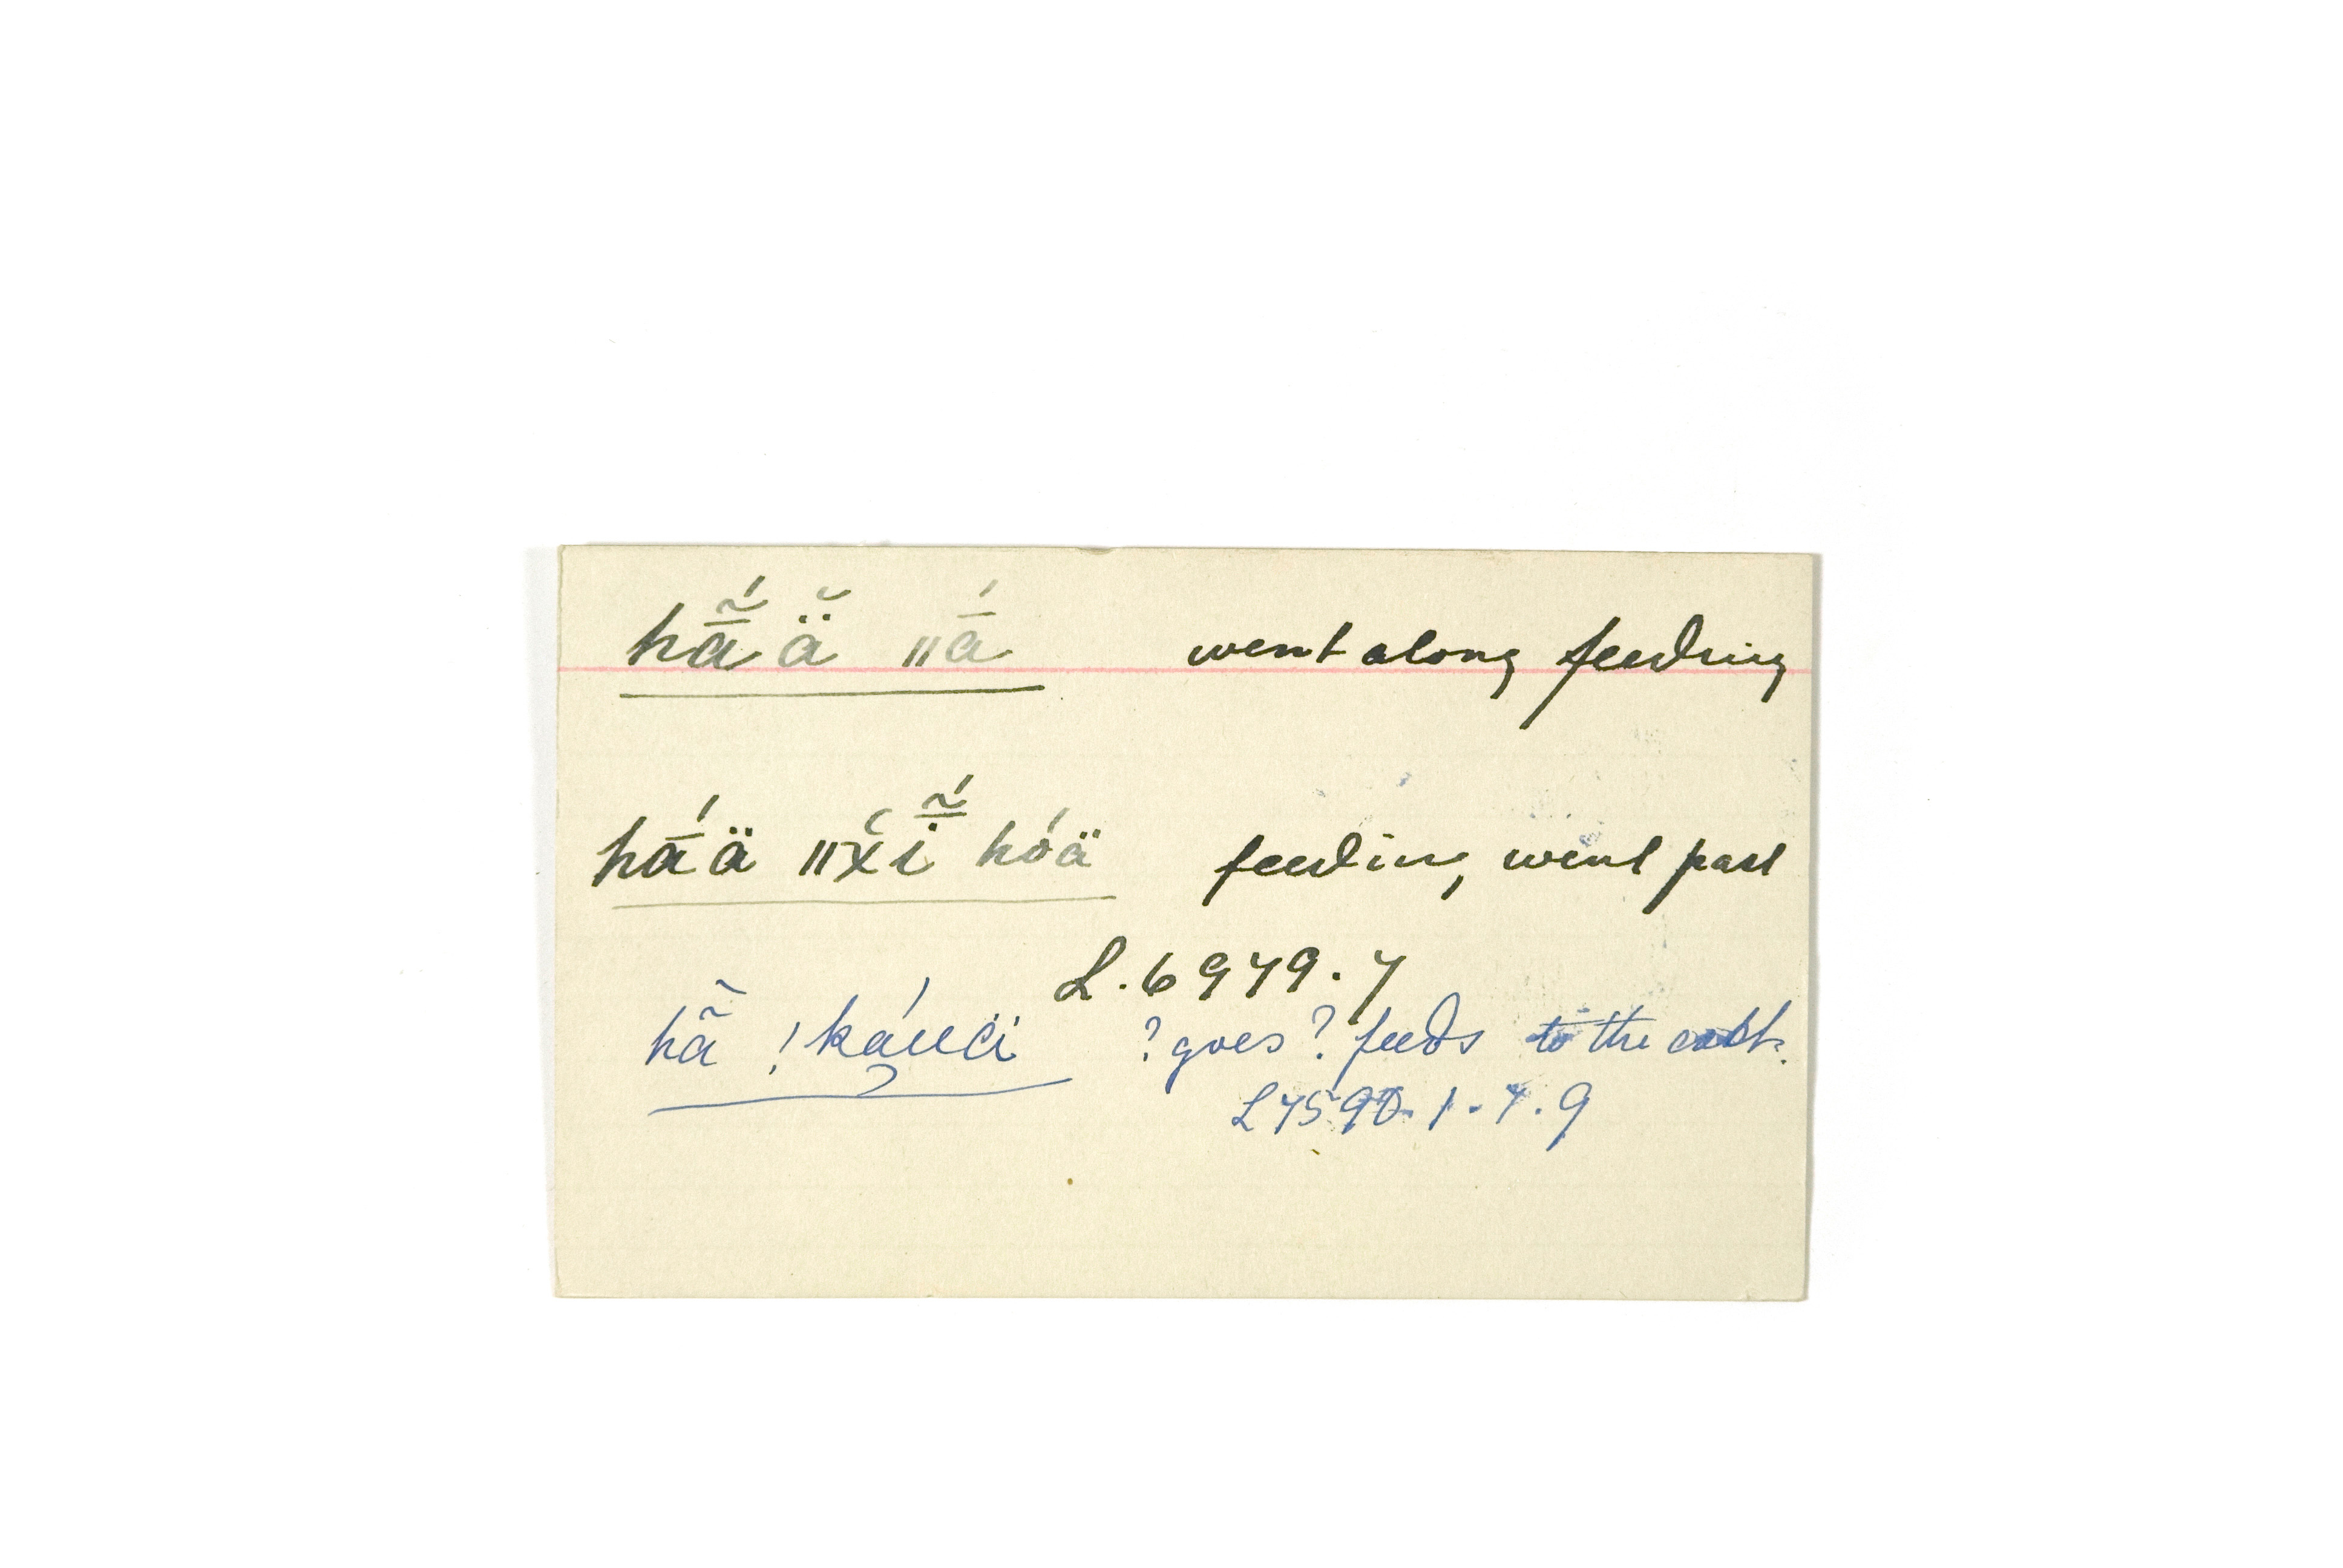 hā̰́ä̆ ǁā́ went along feeding
hā́ä ǁx̆ḭ̄́ hóä feeding, went past
L.6979.7
hã̄ !káuëi ? goes ? feeds to the
L7590.1.7.9